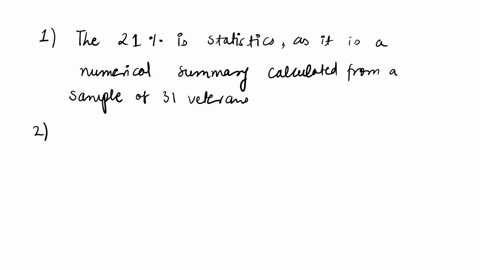 1) The 21% is statistics, as it is a
numerical summary calculated from a
sample of 31 veterans
2)